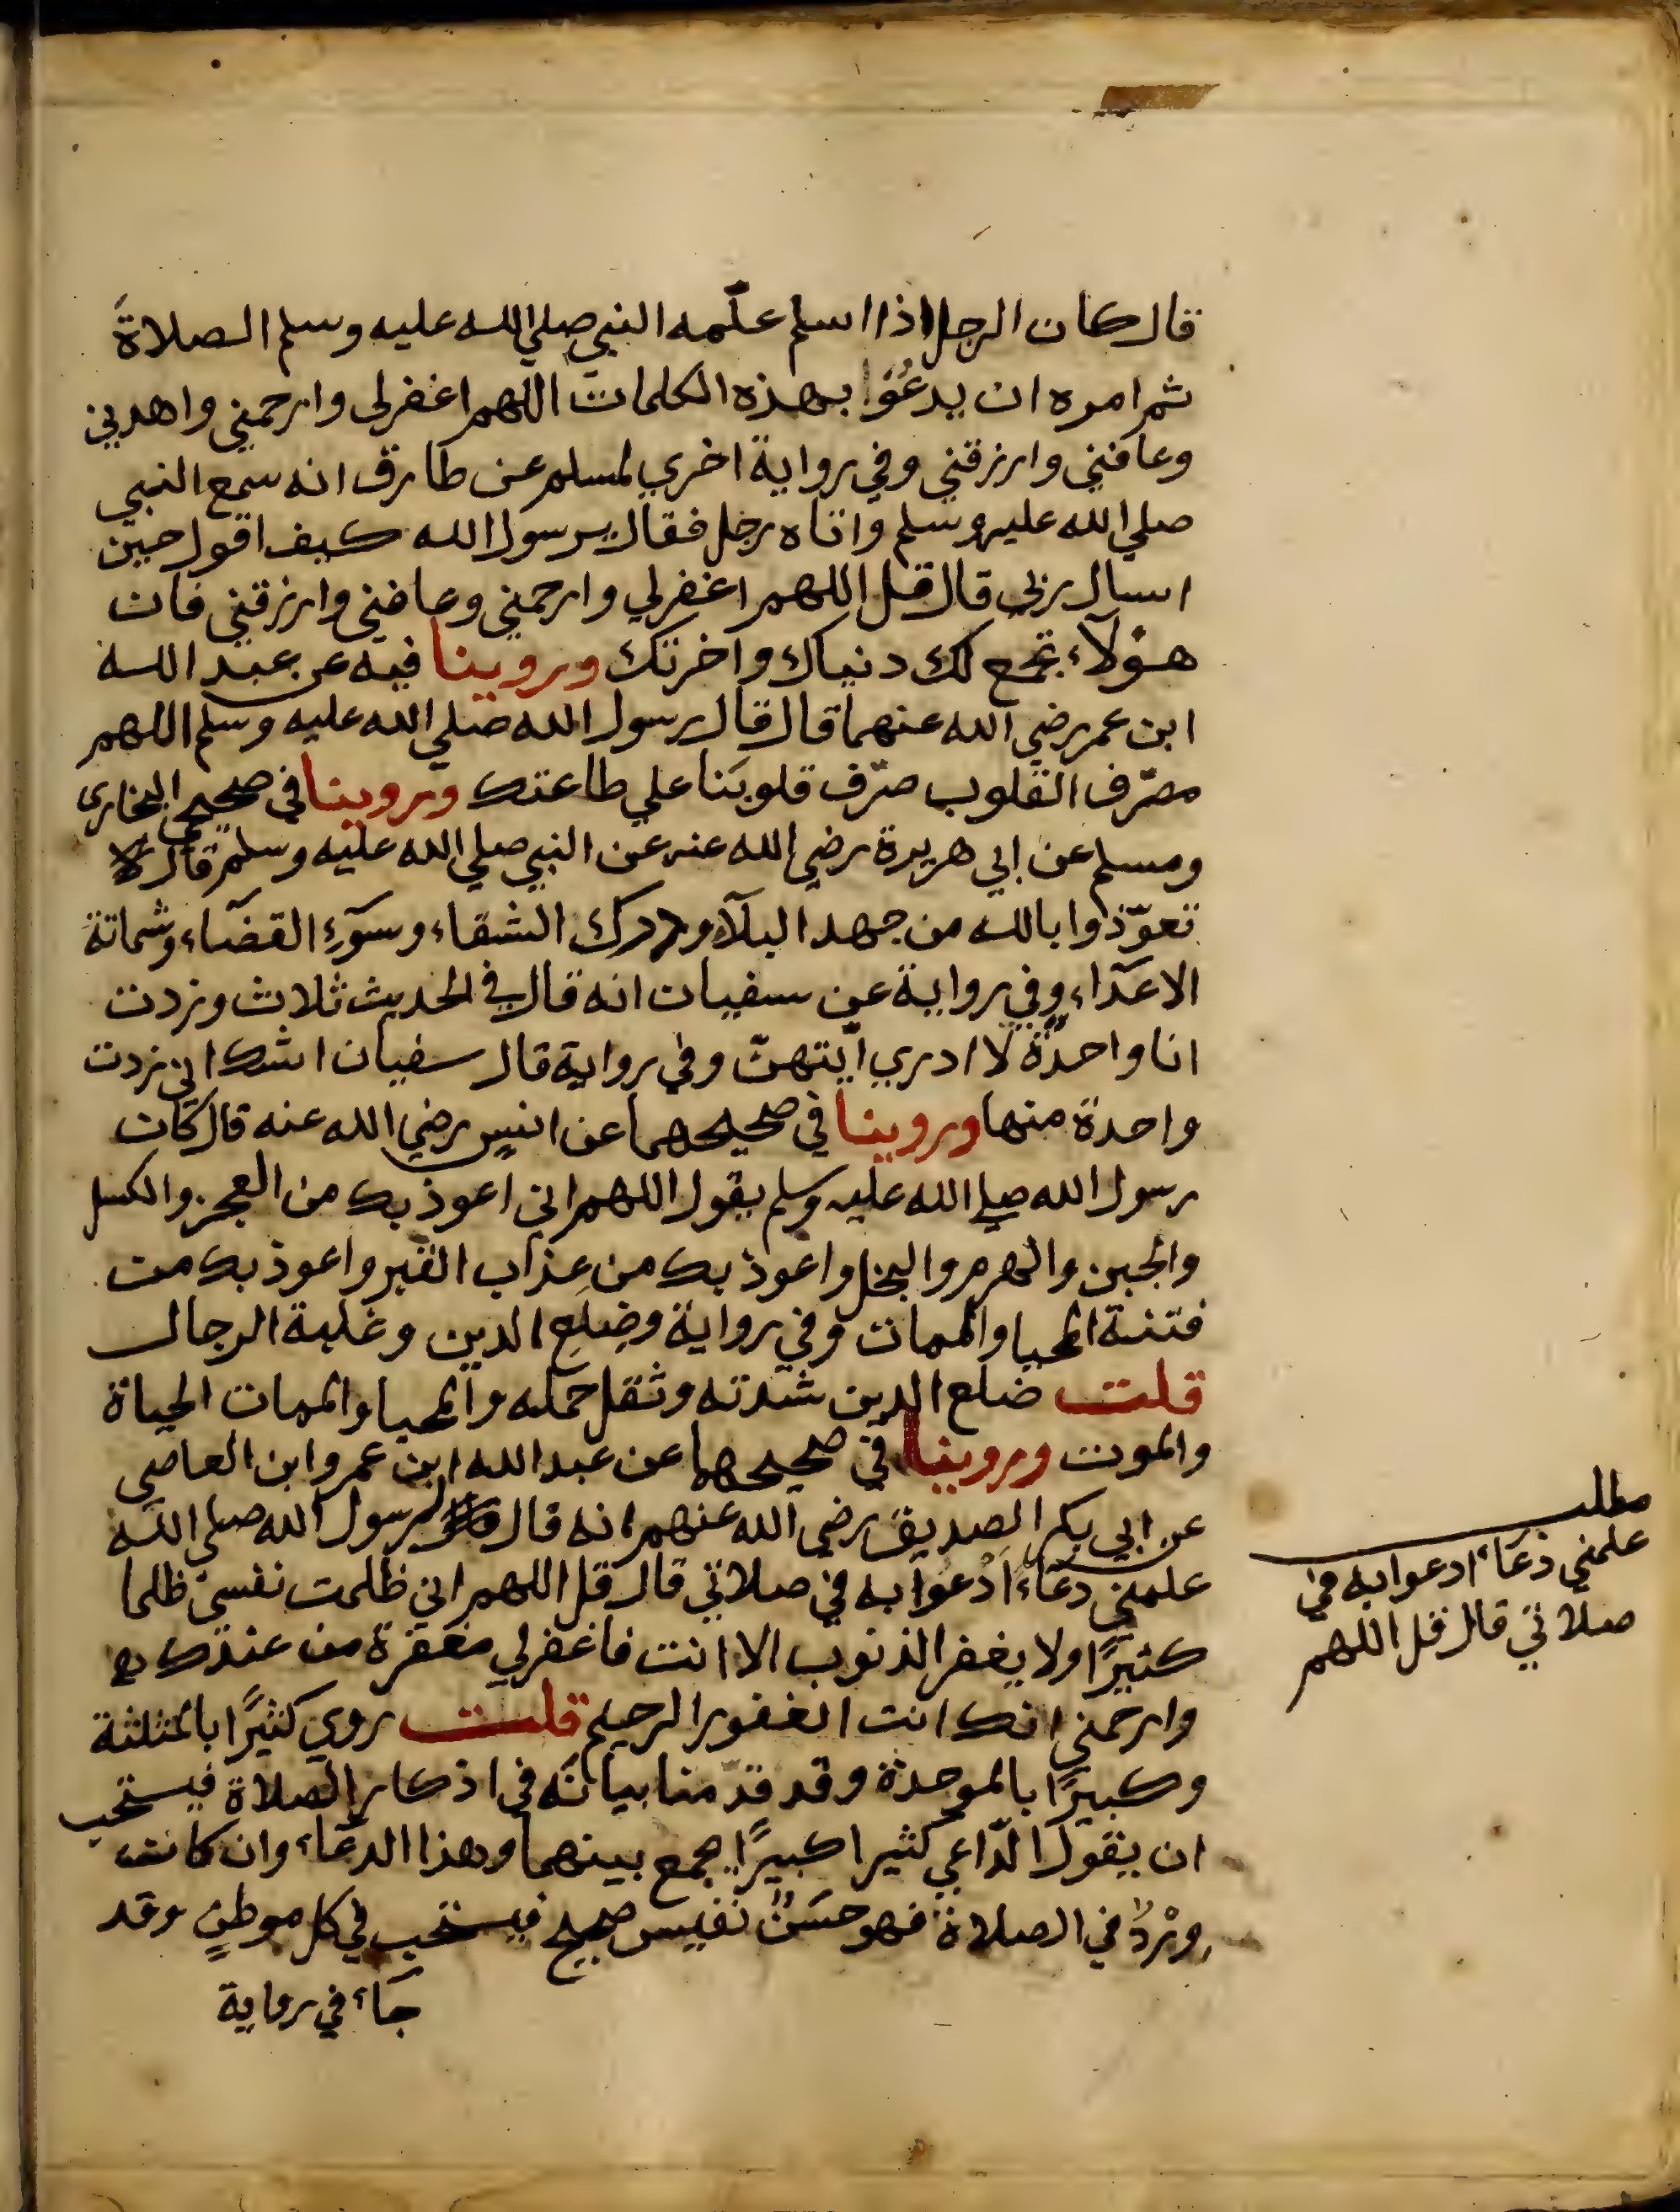 قال كان الرجل اذا اسلم علّمه النبي صلي الله عليه وسلم الصلاةَ
ثم امره ان يدعُوَا بهذه الكلمات اللهم اغفرلي وارحمني واهدني
وعافني وارزقني وفي رواية اخري لمسلم عن طارق انه سمع النبي
صلي الله عليه وسلم واتاه رجل فقال يرسول الله كيف اقول حين
اسال ربي قال قل اللهم اغفرلي وارحمني وعافني وارزقني فان
هؤلآء تجمع لك دنياك واخرتك وروينا فيه عن عبد الله
ابن عمر رضي الله عنهما قال قال رسول الله صلي الله عليه وسلم اللهم
مصّرف القلوب صرّف قلوبَنا علي طاعتك وروينا في صحيحي البخاري
ومسلم عن ابي هريرة رضي الله عنه عن النبي صلي الله عليه وسلم قال
تعوّذوا بالله من جهد البلآء ودرك الشقاء وسوٓء القضآء وشماتة
الاعدآء وفي رواية عن سفيان انه قال في الحديث ثلاث وزدت
انا واحدةً لا ادري ايّتهنّ وفي رواية قال سفيان اشك اني زدت
واحدة منها وروينا في صحيحهما عن انس رضي الله عنه قال كان
رسول الله صلي الله عليه وسلم يقول اللهم اني اعوذ بك من العجز والكسل
والجبن والهرم والبخل واعوذ بك من عذاب القبر واعوذ بك من
فتنة المحيا والممات وفي رواية وضلع الدين وغلبة الرجال
قلت ضلع الدين شدته وثقل حمله والمحيا والممات الحياة
والموت وروينا في صحيحهما عن عبد الله ابن عمرو ابن العاصي
عن ابي بكر الصديق رضي الله عنهم انه قال لرسول الله صلي الله
علمني دعآء ادْعُوا به في صلاتي قال قل اللهم اني ظلمت نفسي ظلما
كثيرًا ولا يغفر الذنوب الا انت فاغفرلي مغفرة من عندك
وارحمني انك انت الغفور الرحيم قلت روي كثيرًا بالمثلثة
وكبيرًا بالموحدة وقد قدّمنا بيانَه في اذكار الصلاة فيستحب
ان يقول الدّاعي كثيرا كبيرًا يجمع بينهما وهذا الدعآء وان كان
وَرْدُ في الصلاة فهو حسَنٌ نفيس صحيح فيستحب في كل موطنٍ وقد
جآء في رواية
مطلب
علمني دعآء ادعوا به في
صلاتي قال قل اللهم